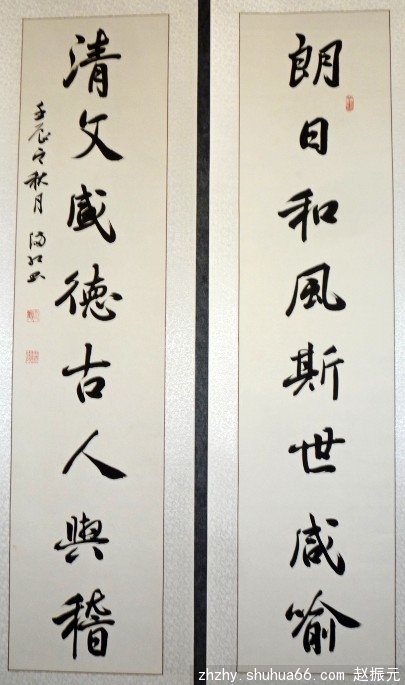 朗日和風斯世咸喻
清文盛德古人與稽
壬辰之秋月
zhzhy.shuhua66.com 赵振元